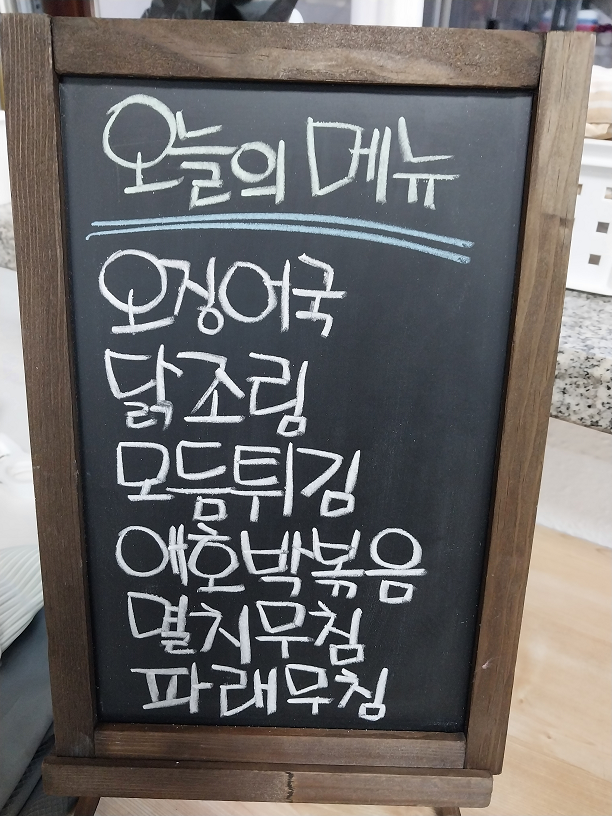 오늘의 메뉴
오징어국
닭조림
모듬튀김
애호박볶음
멸치무침
파래무침